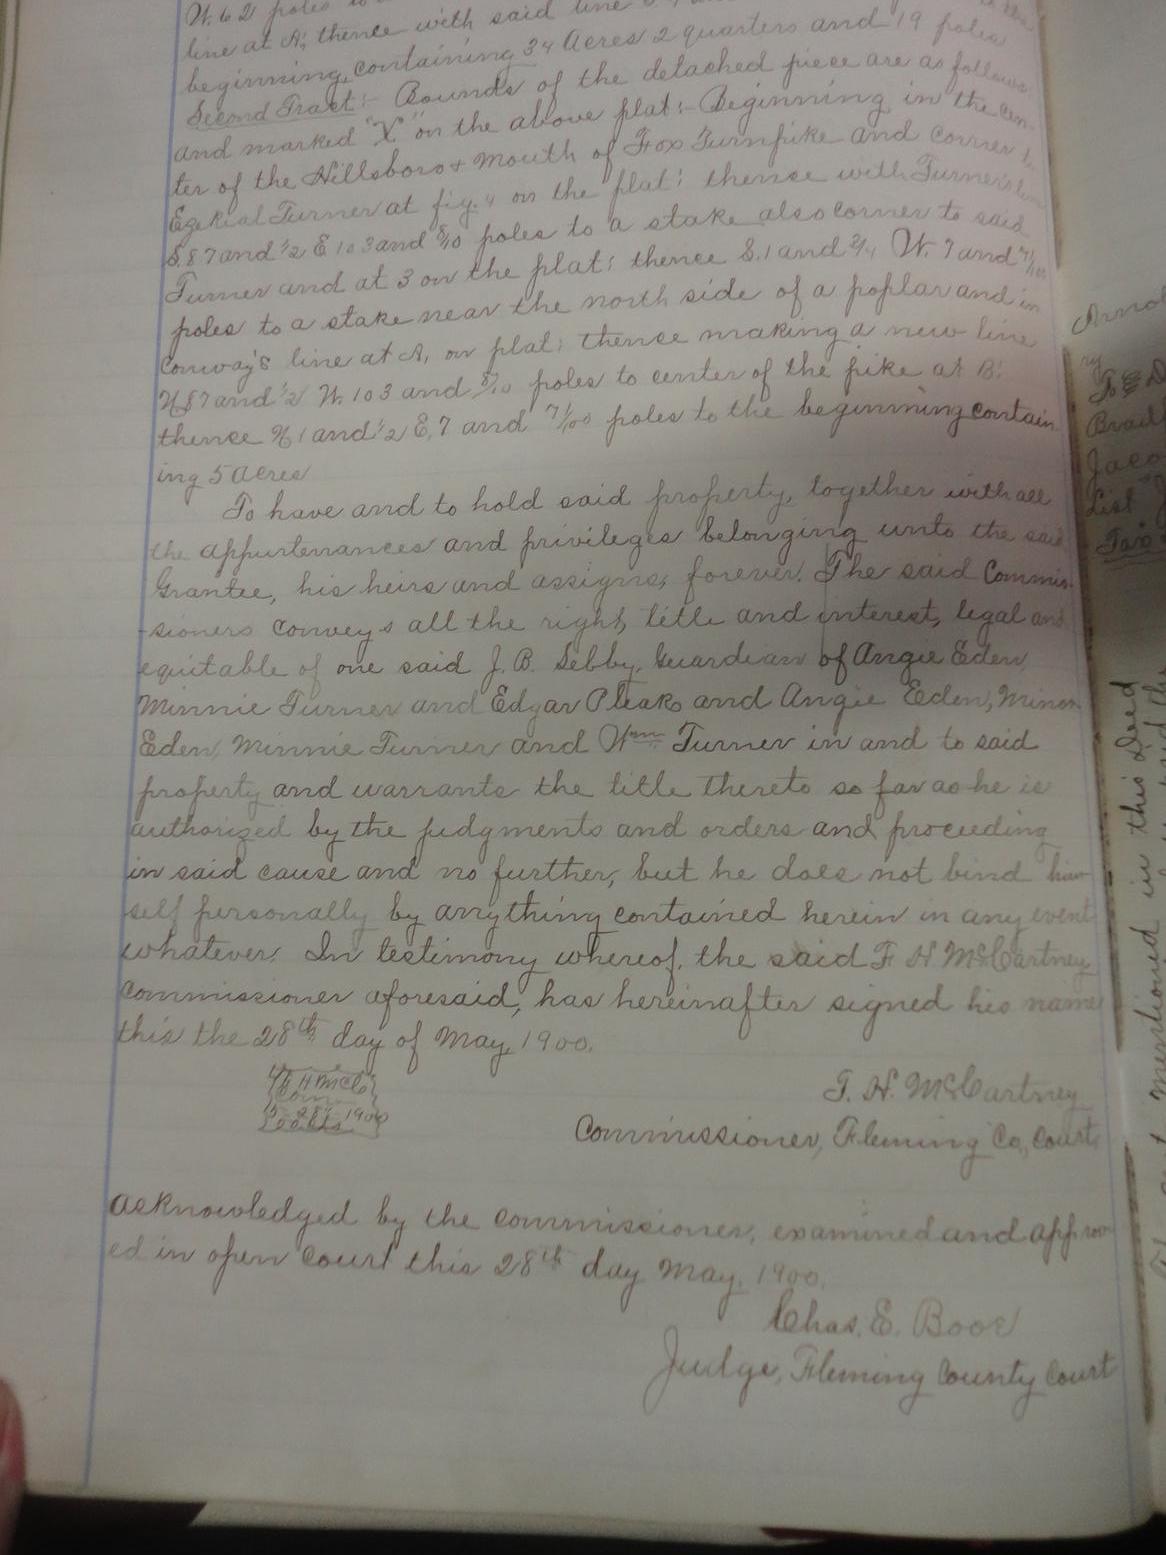 W. 62 poles
line at A; thence with said line
beginning, containing 34 Acres 2 quarters and 19 poles
Second Tract:- Bounds of the detached piece are as follows
and marked "X" on the above plat:- Beginning in the cen-
ter of the Hillsboro & Mouth of Fox Turnpike and corner to
Ezekial Turner at fig. 4 on the plat; thence with Turner's line
S. 87 and 1/2 E 103 and 8/10 poles to a stake also corner to said
Turner and at 3 on the plat; thence S. 1 and 3/4 W. 7 and 71/100
poles to a stake near the north side of a poplar and in
Conway's line at A, on plat; thence making a new line
N 87 and 1/2 W. 103 and 8/10 poles to center of the pike at B;
thence N 1 and 1/2 E, 7 and 71/100 poles to the beginning contain-
ing 5 Acres
To have and to hold said property, together with all
the appurtenances and privileges belonging unto the said
Grantee, his heirs and assigns, forever. The said Commis-
-sioners conveys all the right, title and interest, legal and
equitable of one said J. B. Sebby, Guardian of Angie Eden
Minnie Turner and Edgar Pleak and Angie Eden, Minor
Eden, Minnie Turner and Wm Turner in and to said
property and warrants the title thereto so far as he is
authorized by the judgments and orders and proceeding
in said cause and no further, but he does not bind him
self personally by anything contained herein in any event
whatever. In testimony whereof, the said F H McCartney
Commissioner aforesaid, has hereinafter signed his name
this the 28th day of May, 1900.
F H McC
Com
28 1900
F. H. McCartney
Commissioner, Fleming Co., Court
Acknowledged by the commissioner, examined and approv
ed in open Court this 28th day May, 1900.
Chas. E. Booe
Judge, Fleming County Court
mentioned in this Deed